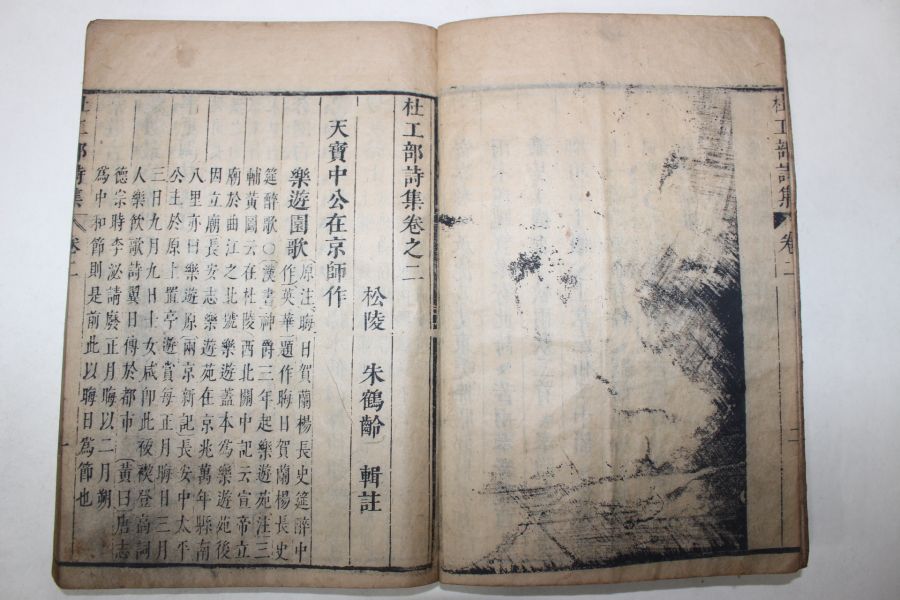 杜工部詩集
卷二
二
杜工部詩集卷之二
松陵 朱鶴齡 輯註
天寶中公在京師作
樂遊園歌
原注晦日賀蘭楊長史筵醉中
作英華題作晦日賀蘭楊長史
筵醉歌○漢書神爵三年起樂遊苑注三
輔黃圖云在杜陵西北關中記云宣帝立
廟於曲江之北號樂遊蓋本為樂遊苑後
因立廟長安志樂遊苑在京兆萬年縣南
八里亦曰樂遊原兩京新記長安中太平
公主於原上置亭遊賞每正月晦日三月
三日九月九日士女咸即此祓禊登高詞
人樂飲歌詩翼日傳於都市 黃曰唐志
德宗時李泌請廢正月晦以二月朔
為中和節則是前此以晦日為節也
工部詩集
卷二
一